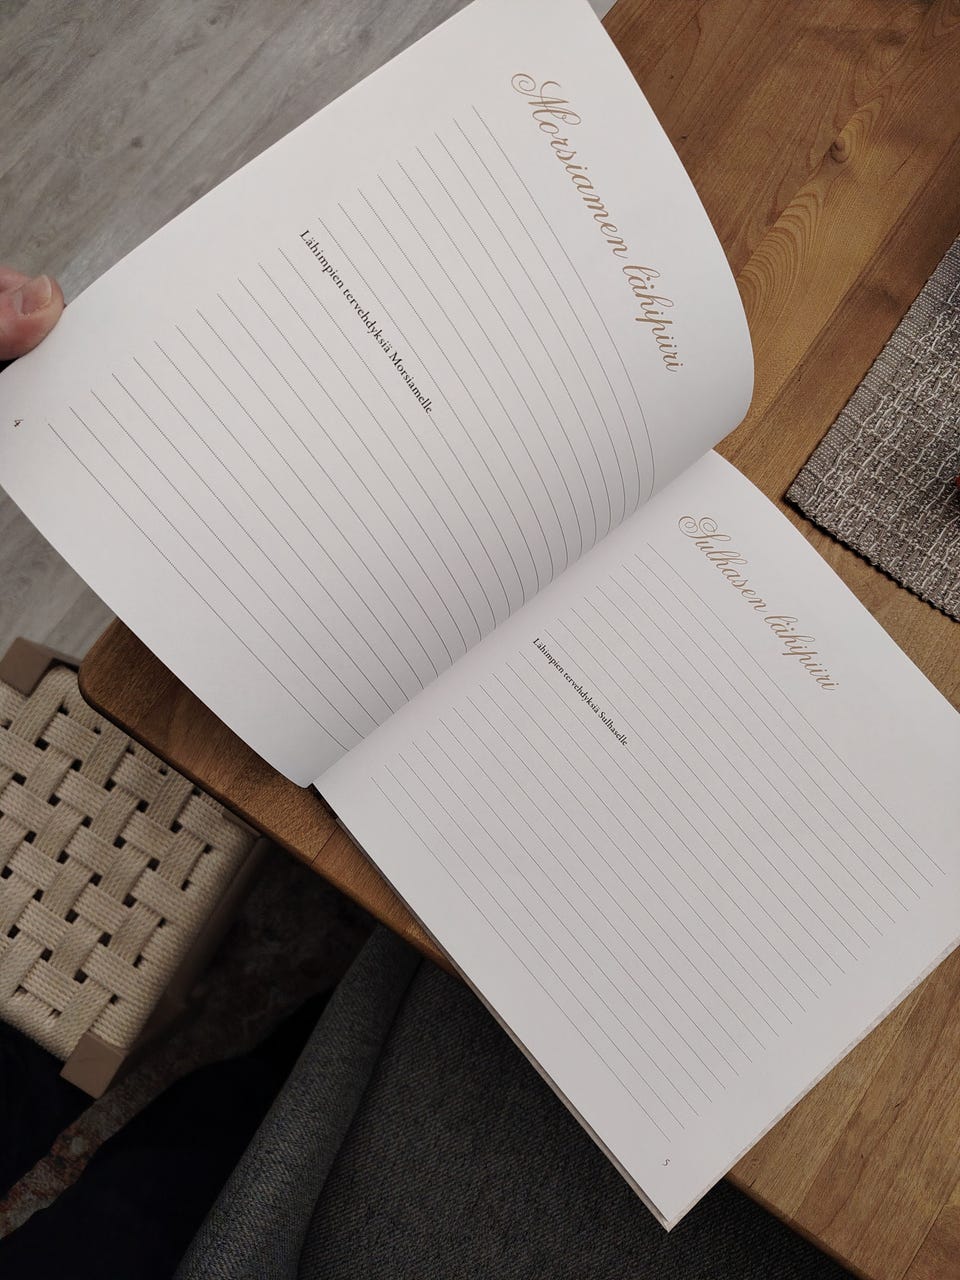 Morsiamen lähipiiri
Lähimpien tervehdyksiä Morsiamelle
4
Sulhasen lähipiiri
Lähimpien tervehdyksiä Sulhaselle
5